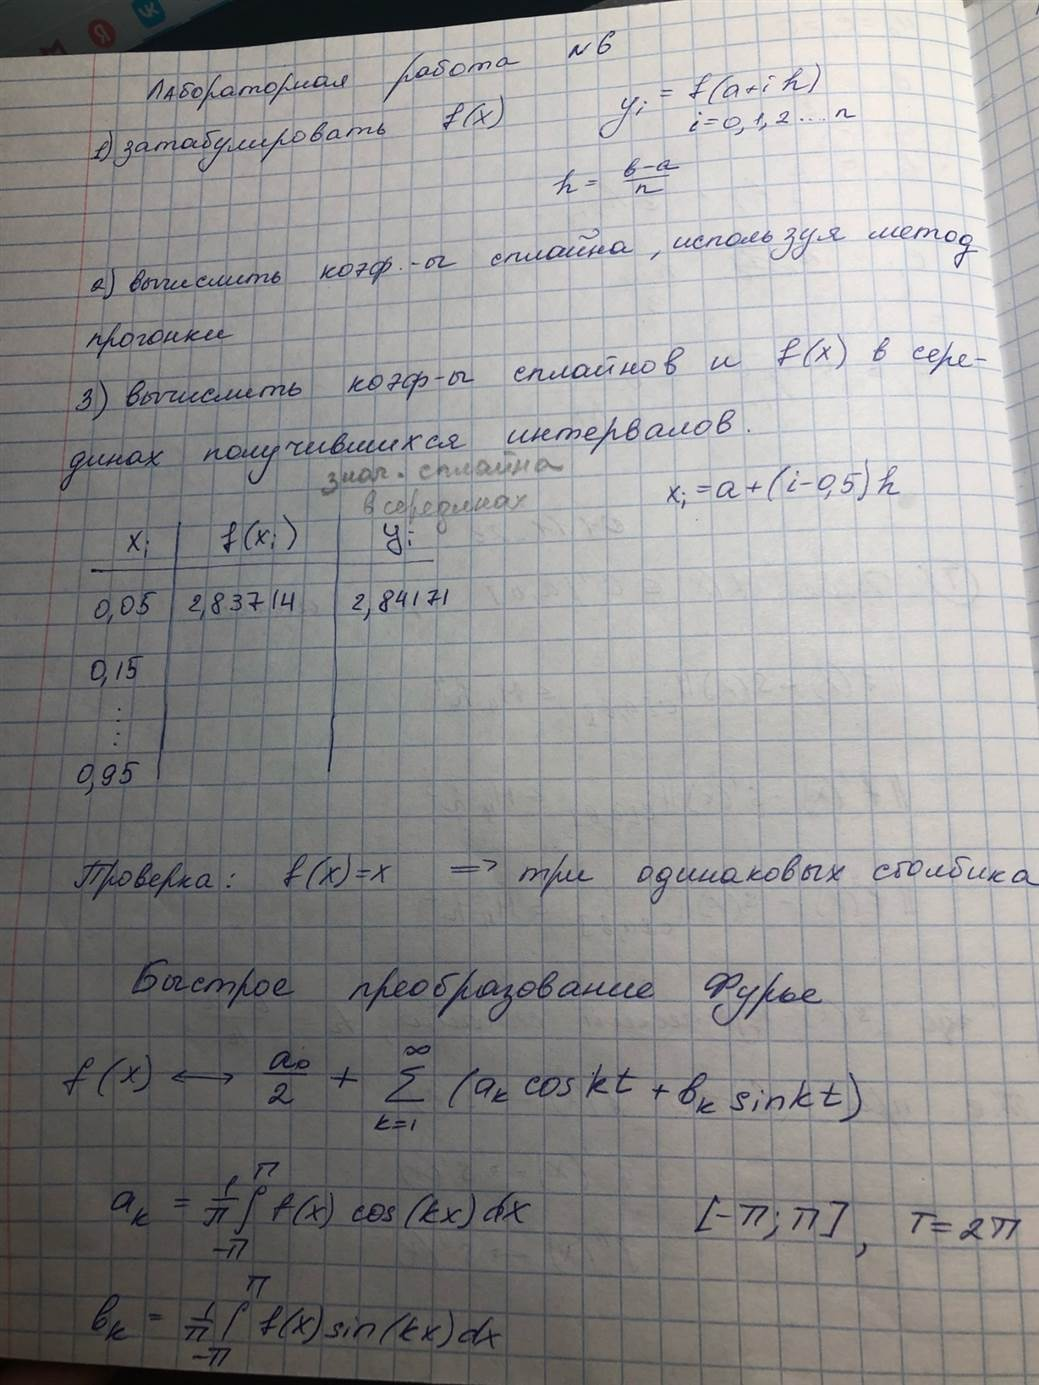 Лабораторная работа №6
1) затабулировать f(x) yᵢ = f(a+ih)
i=0,1,2...n
h = (b-a)/n
2) вычислить коэф.-ы сплайна, используя метод
прогонки
3) вычислить коэф-ы сплайнов и f(x) в сере-
динах получившихся интервалов.
знач. сплайна
в серединах
xᵢ = a+(i-0,5)h
xᵢ f(xᵢ) yᵢ
0,05 2,83714 2,84171
0,15
⋮
0,95
Проверка: f(x)=x => три одинаковых столбика
Быстрое преобразование Фурье
f(x) ↔ a₀/2 + ∑_{k=1}^{∞} (aₖ cos kt + bₖ sin kt)
aₖ = 1/π ∫_{-π}^{π} f(x) cos(kx)dx [-π; π], T=2π
bₖ = 1/π ∫_{-π}^{π} f(x) sin(kx)dx